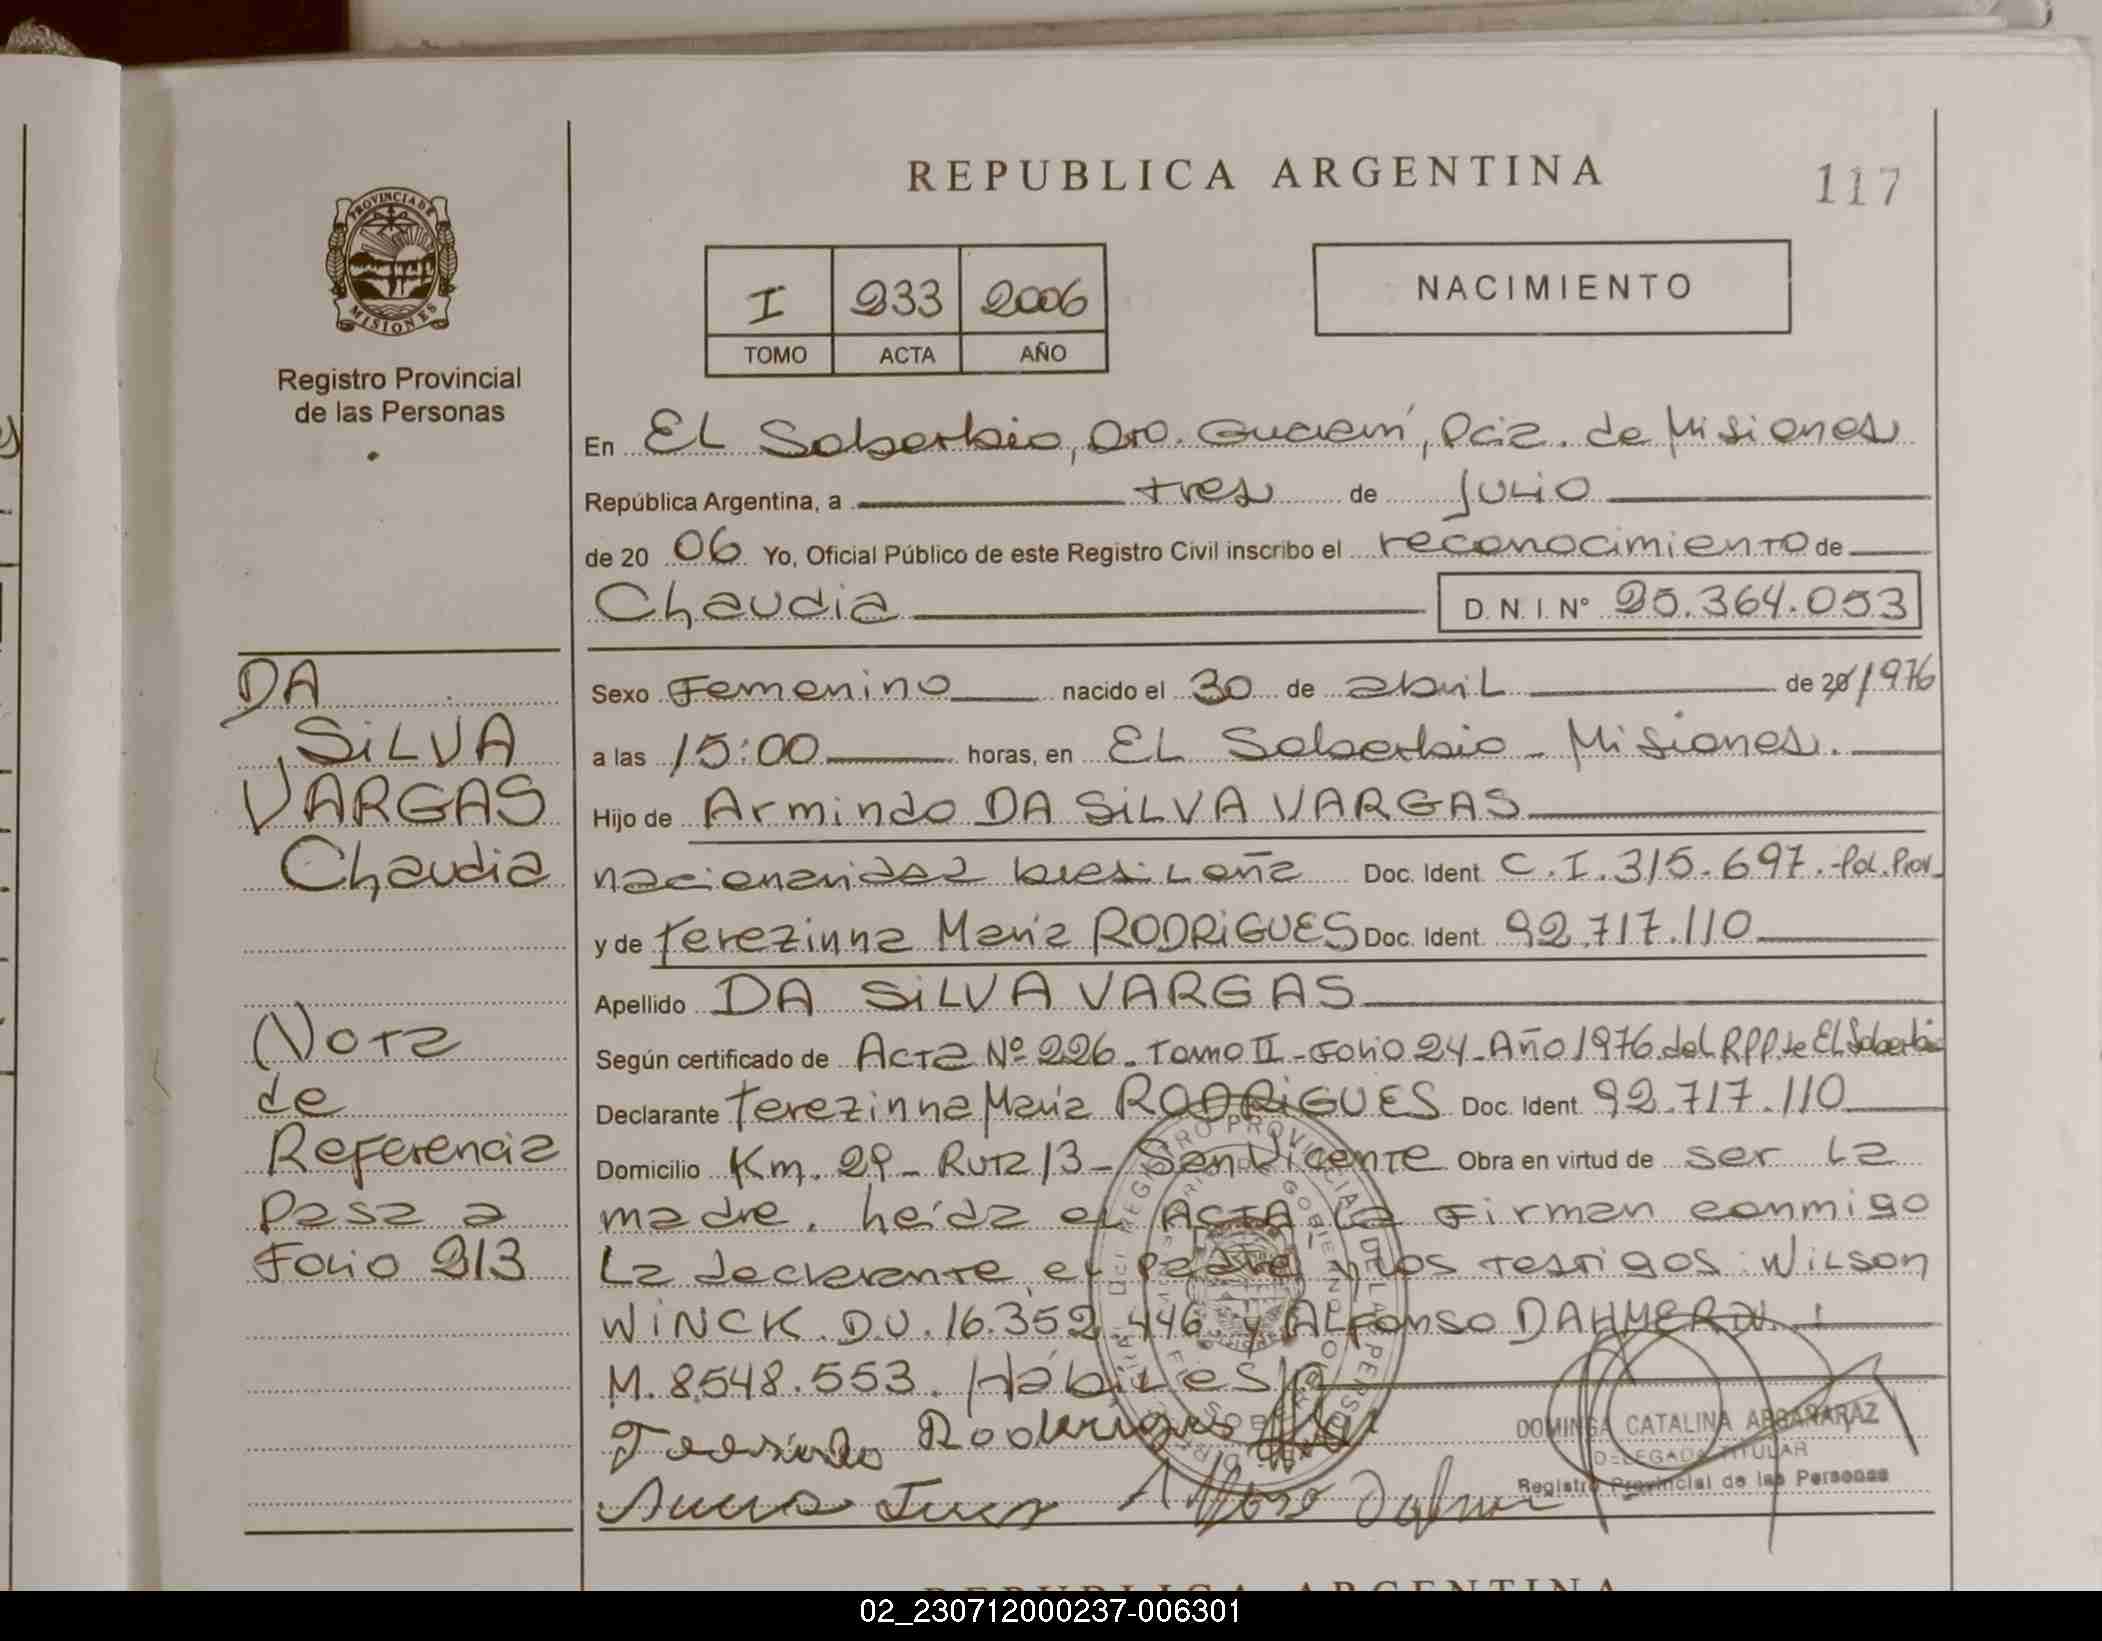 REPUBLICA ARGENTINA
117
PROVINCIA DE
MISIONES
Registro Provincial
de las Personas
I 233 2006
TOMO ACTA AÑO
NACIMIENTO
En EL Soberbio, Dto. Guaraní, Pcia. de Misiones
República Argentina, a tres de julio
de 20 06 Yo, Oficial Público de este Registro Civil inscribo el reconocimiento de
Claudia D. N. I. Nº 25.364.053
DA
SiLVA
VARGAS
Claudia
Nota
de
Referencia
Pasa a
Folio 213
Sexo Femenino nacido el 30 de abril de 20/1976
a las 15:00 horas, en EL Soberbio - Misiones.
Hijo de Armindo DA SiLVA VARGAS
nacionalidad brasileña Doc. Ident. C.I. 315.697.-Pol. Prov.
y de Terezinna Maria RODRiGUES Doc. Ident. 92.717.110
Apellido DA SiLVA VARGAS
Según certificado de Acta Nº 226 - Tomo II - Folio 24 - Año 1976 del RPP. de El Soberbio
Declarante Terezinna Maria RODRiGUES Doc. Ident. 92.717.110
Domicilio Km. 29 - Ruta 13 - San Vicente Obra en virtud de ser la
madre. Leída el ACTA la firman conmigo
La declarante, el padre y los testigos: Wilson
WiNCK. D.U. 16.352.446 y Alfonso DAHMER
M. 8.548.553. Hábiles
Rodrigues
DOMINGA CATALINA ARGAÑARAZ
DELEGADA TITULAR
Registro Provincial de las Personas
REPUBLICA ARGENTINA
02_230712000237-006301